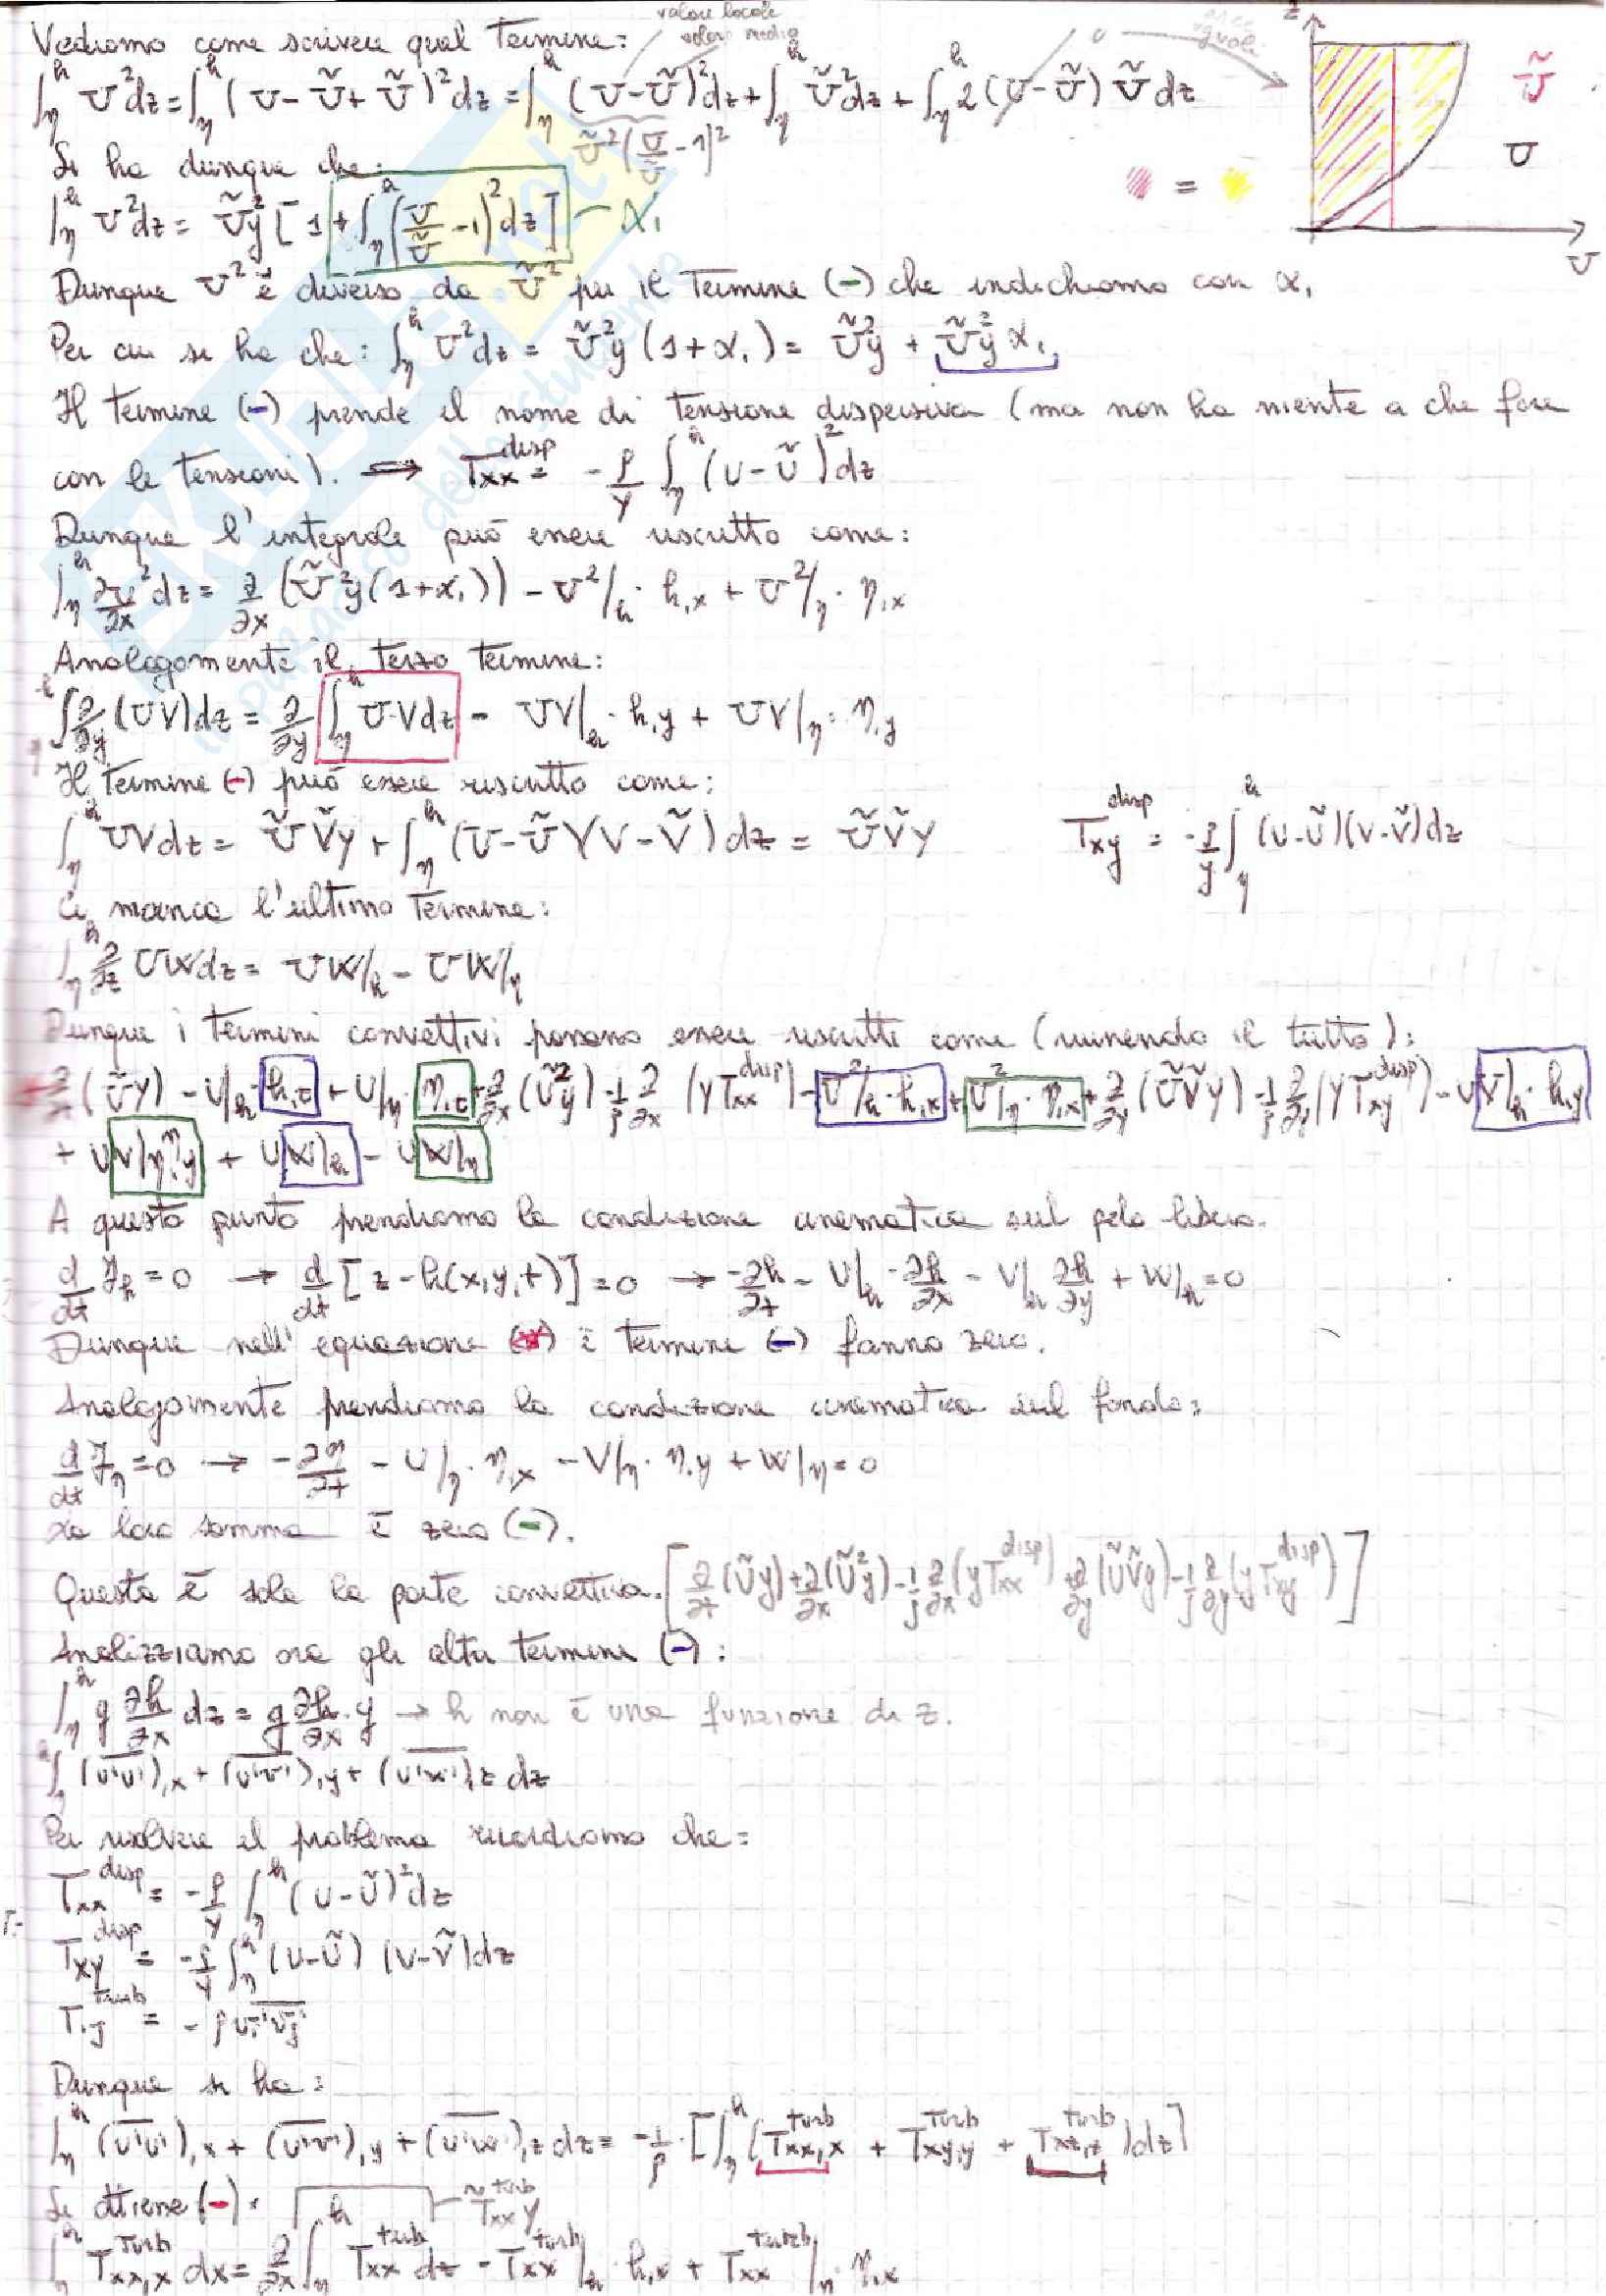 valore locale
valor medio
aree uguali
Vediamo come scrivere qual termine:
∫_η^h U²dz = ∫_η^h (U - Ũ + Ũ)² dz = ∫_η^h (U-Ũ)²dz + ∫_η^h Ũ²dz + ∫_η^h 2(U-Ũ) Ũ dz
Ũ²(U/Ũ - 1)²
0
z
Ũ
U
=
U
Si ha dunque che:
∫_η^h U²dz = Ũ²y [1 + ∫_η^h (U/Ũ - 1)² dz] α₁
Dunque U² è diverso da Ũ² per il termine (-) che indichiamo con α₁
Per cui si ha che: ∫_η^h U²dz = Ũ²y (1+α₁) = Ũ²y + Ũ²y α₁
Il termine (-) prende il nome di tensione dispersiva (ma non ha niente a che fare
con le tensioni). ⟹ Txx^disp = -ρ/y ∫_η^h (U-Ũ)²dz
Dunque l'integrale può essere riscritto come:
∫_η^h ∂U²/∂x dz = ∂/∂x (Ũ²y(1+α₁)) - U²|_h · h,x + U²|_η · η,x
Analogamente il terzo termine:
∫_η^h ∂/∂y (UV)dz = ∂/∂y ∫_η^h U·V dz - UV|_h · h,y + UV|_η · η,y
Il termine (-) può essere riscritto come:
∫_η^h UVdz = ŨṼy + ∫_η^h (U-Ũ)(V-Ṽ) dz = ŨṼy
Txy^disp = -ρ/y ∫_η^h (U-Ũ)(V-Ṽ)dz
Ci manca l'ultimo termine:
∫_η^h ∂/∂z UWdz = UW|_h - UW|_η
Dunque i termini convettivi possono essere riscritti come (riunendo il tutto):
∂/∂t (Ũy) - U|_h · h,t + U|_η · η,t + ∂/∂x (Ũ²y) - 1/ρ ∂/∂x (y Txx^disp) - U²|_h · h,x + U²|_η · η,x + ∂/∂y (ŨṼy) - 1/ρ ∂/∂y (y Txy^disp) - UV|_h · h,y
+ UV|_η η,y + UW|_h - UW|_η
A questo punto prendiamo la condizione cinematica sul pelo libero.
d/dt F_h = 0 → d/dt [z - h(x,y,t)] = 0 → -∂h/∂t - U|_h · ∂h/∂x - V|_h ∂h/∂y + W|_h = 0
Dunque nell'equazione (*) i termini (-) fanno zero.
Analogamente prendiamo la condizione cinematica sul fondo:
d/dt F_η = 0 → -∂η/∂t - U|_η · η,x - V|_η · η,y + W|_η = 0
La loro somma è zero (-).
Questa è solo la parte convettiva. [∂/∂t (Ũy) + ∂/∂x (Ũ²y) - 1/ρ ∂/∂x (y Txx^disp) + ∂/∂y (ŨṼy) - 1/ρ ∂/∂y (y Txy^disp)]
Analizziamo ora gli altri termini (-):
∫_η^h g ∂h/∂x dz = g ∂h/∂x · y → h non è una funzione di z.
∫_η^h (u'u'),x + (u'v'),y + (u'w'),z dz
Per risolvere il problema ricordiamo che:
Txx^disp = -ρ/y ∫_η^h (U-Ũ)²dz
Txy^disp = -ρ/y ∫_η^h (U-Ũ) (V-Ṽ)dz
Tij^turb = -ρ ui'uj'
Dunque si ha:
∫_η^h (u'u'),x + (u'v'),y + (u'w'),z dz = -1/ρ · [∫_η^h (Txx,x^turb + Txy,y^turb + Txz,z^turb) dz]
Si ottiene (-): T̃xx^turb y
∫_η^h Txx,x^turb dx = ∂/∂x ∫_η^h Txx^turb dz - Txx^turb|_h · h,x + Txx^turb|_η · η,x